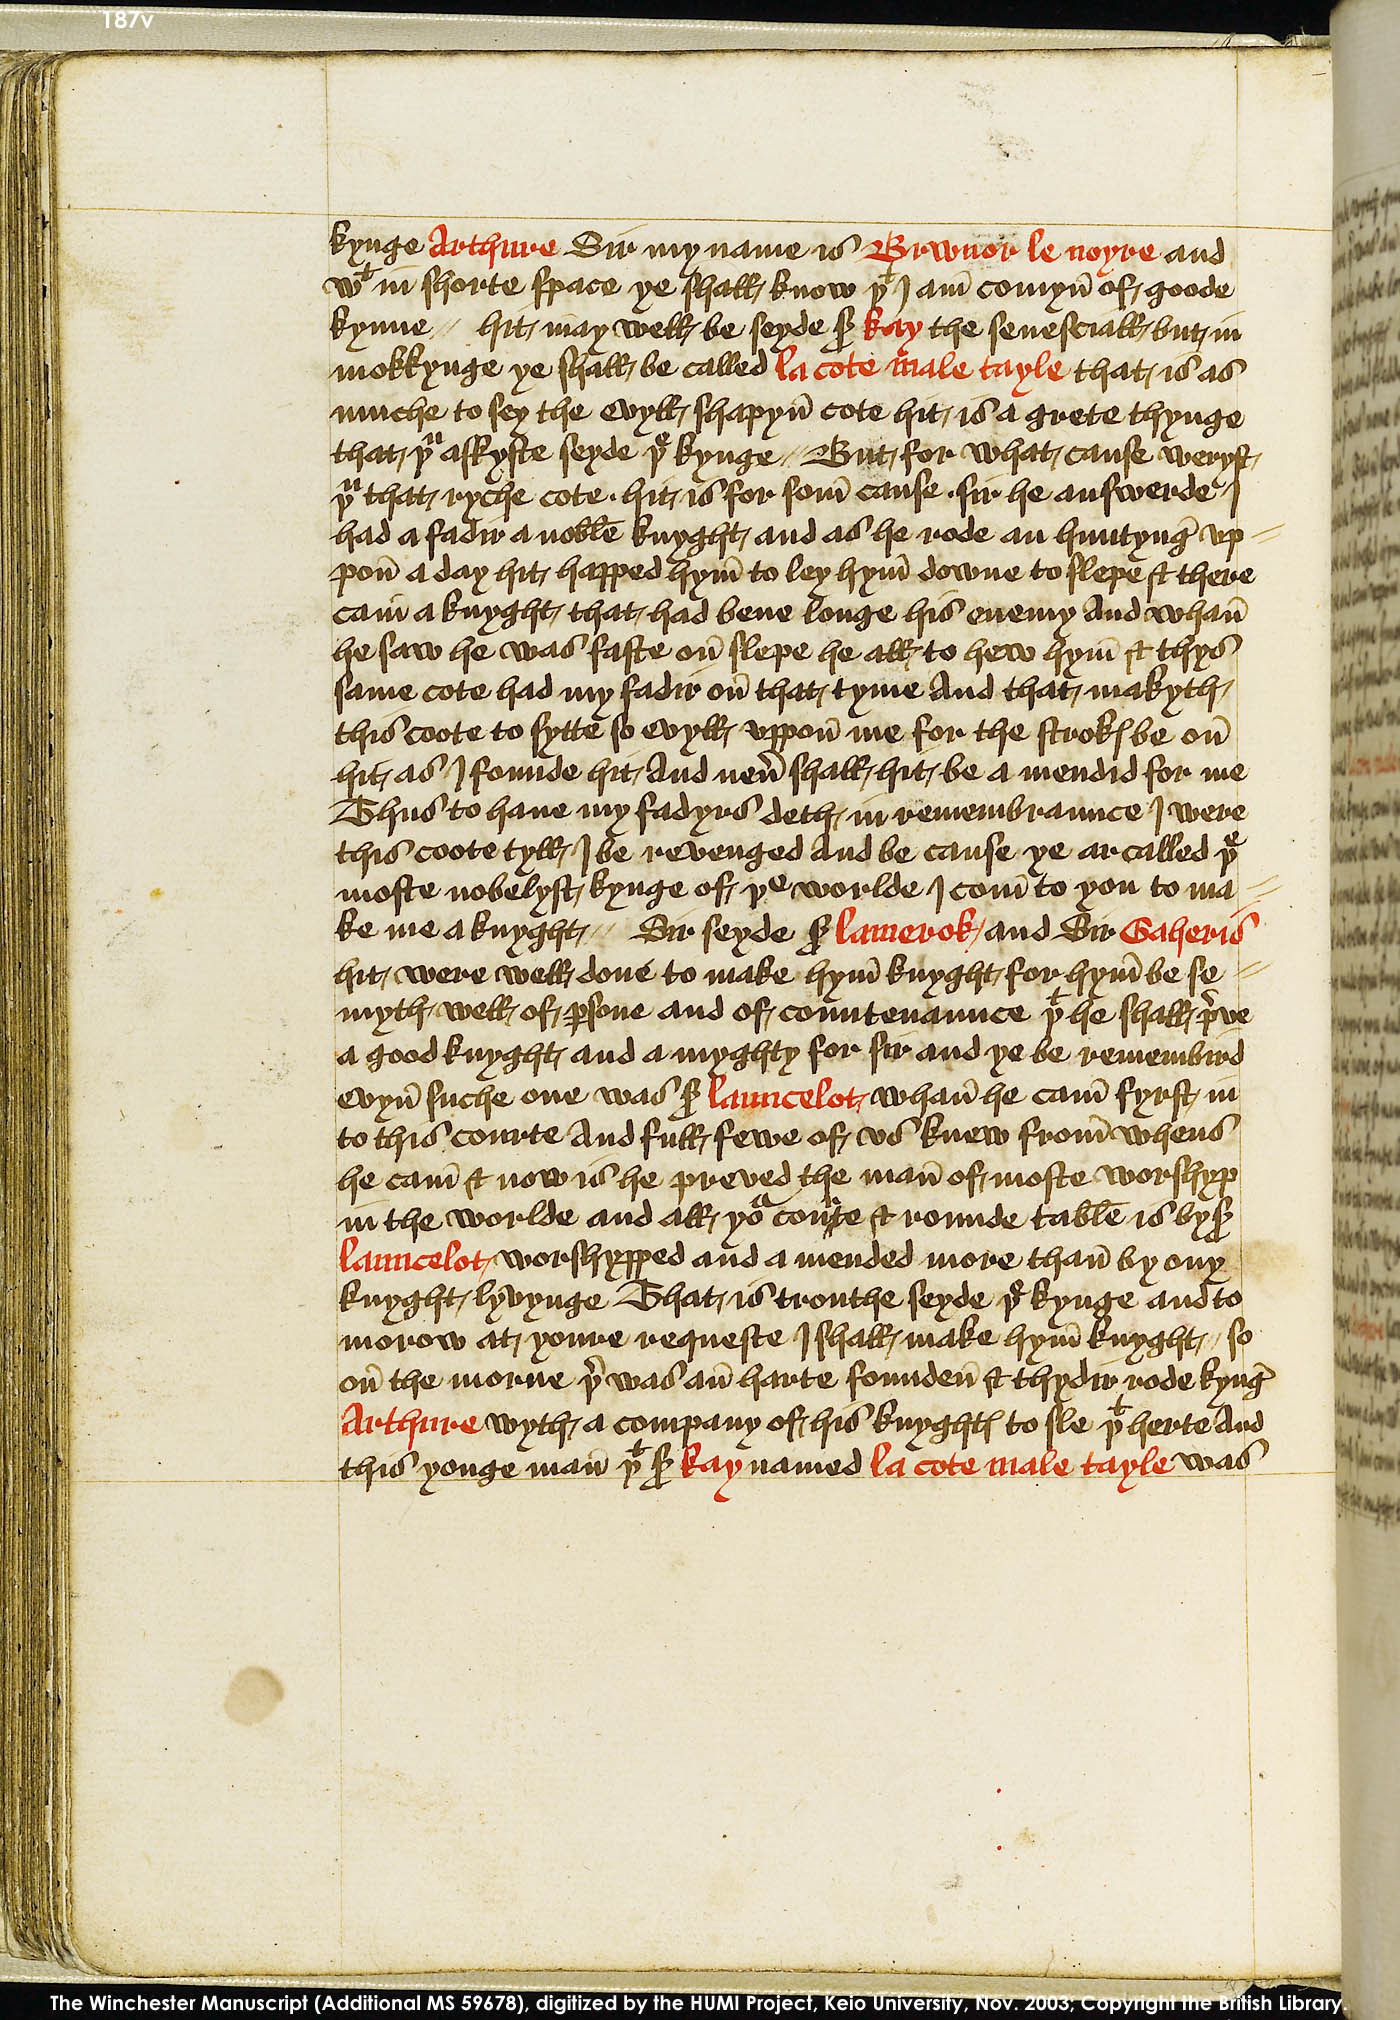 187v
kynge Arthure Sir my name is Brwnor le noyre and
wᵗ in shorte space ye shall know yᵗ I am̄ comyn̄ of goode
kynne // hit may well be seyde sʳ kay the senesciall but in
mokkynge ye shall be called la cote male tayle that is as
muche to sey the evyll shapyn̄ cote hit is a grete thynge
that yᵘ askyste seyde yᵉ kynge // But for what cause weryst
yᵘ that ryche cote · hit is for som̄ cause · sir he answerde I
had a fadir a noble knyght and as he rode an huntynḡ vp =
pon̄ a day hit happed hym̄ to ley hym̄ downe to slepe & there
cam̄ a knyght that had bene longe his enemy And whan̄
he saw he was faste on̄ slepe he all to hew hym̄ & thys
same cote had my fadir on̄ that tyme And that makyth
this coote to sytte so evyll vppon̄ me for the strokꝭ be on̄
hit as I founde hit And neuˀ shall hit be a mendid for me
Thus to haue my fadyrs deth in remembraunce I were
this coote tyll I be revenged And be cause ye ar called yᵉ
moste nobelyst kynge of yᵉ worlde I com̄ to you to ma =
ke me a knyght // Sir seyde sʳ lamerok and Sir Gaheris
hit were well done to make hym̄ knyght for hym̄ be se =
myth well of ꝑsone and of countenaunce yᵗ he shall pˀve
a good knyght and a myghty for sir and ye be remembird
evyn̄ suche one was sʳ launcelot whan̄ he cam̄ fyrst in
to this courte And full fewe of vs knew from̄ whens
he cam̄ & now is he preved the man̄ of moste worshyp
in the worlde and all yoʳ courte & rounde table is by sʳ
launcelot worshypped and a mended more than̄ by ony
knyght lyvynge That is trouthe seyde yᵉ kynge and to
morow at youre requeste I shall make hym̄ knyght // so
on̄ the morne yˀ was an̄ harte founden̄ & thydir rode kynḡ
Arthure wyth a company of his knyghtꝭ to sle yᵗ herte And
this yonge man̄ yᵗ sʳ kay named la cote male tayle was
The Winchester Manuscript (Additional MS 59678), digitized by the HUMI Project, Keio University, Nov. 2003; Copyright the British Library.